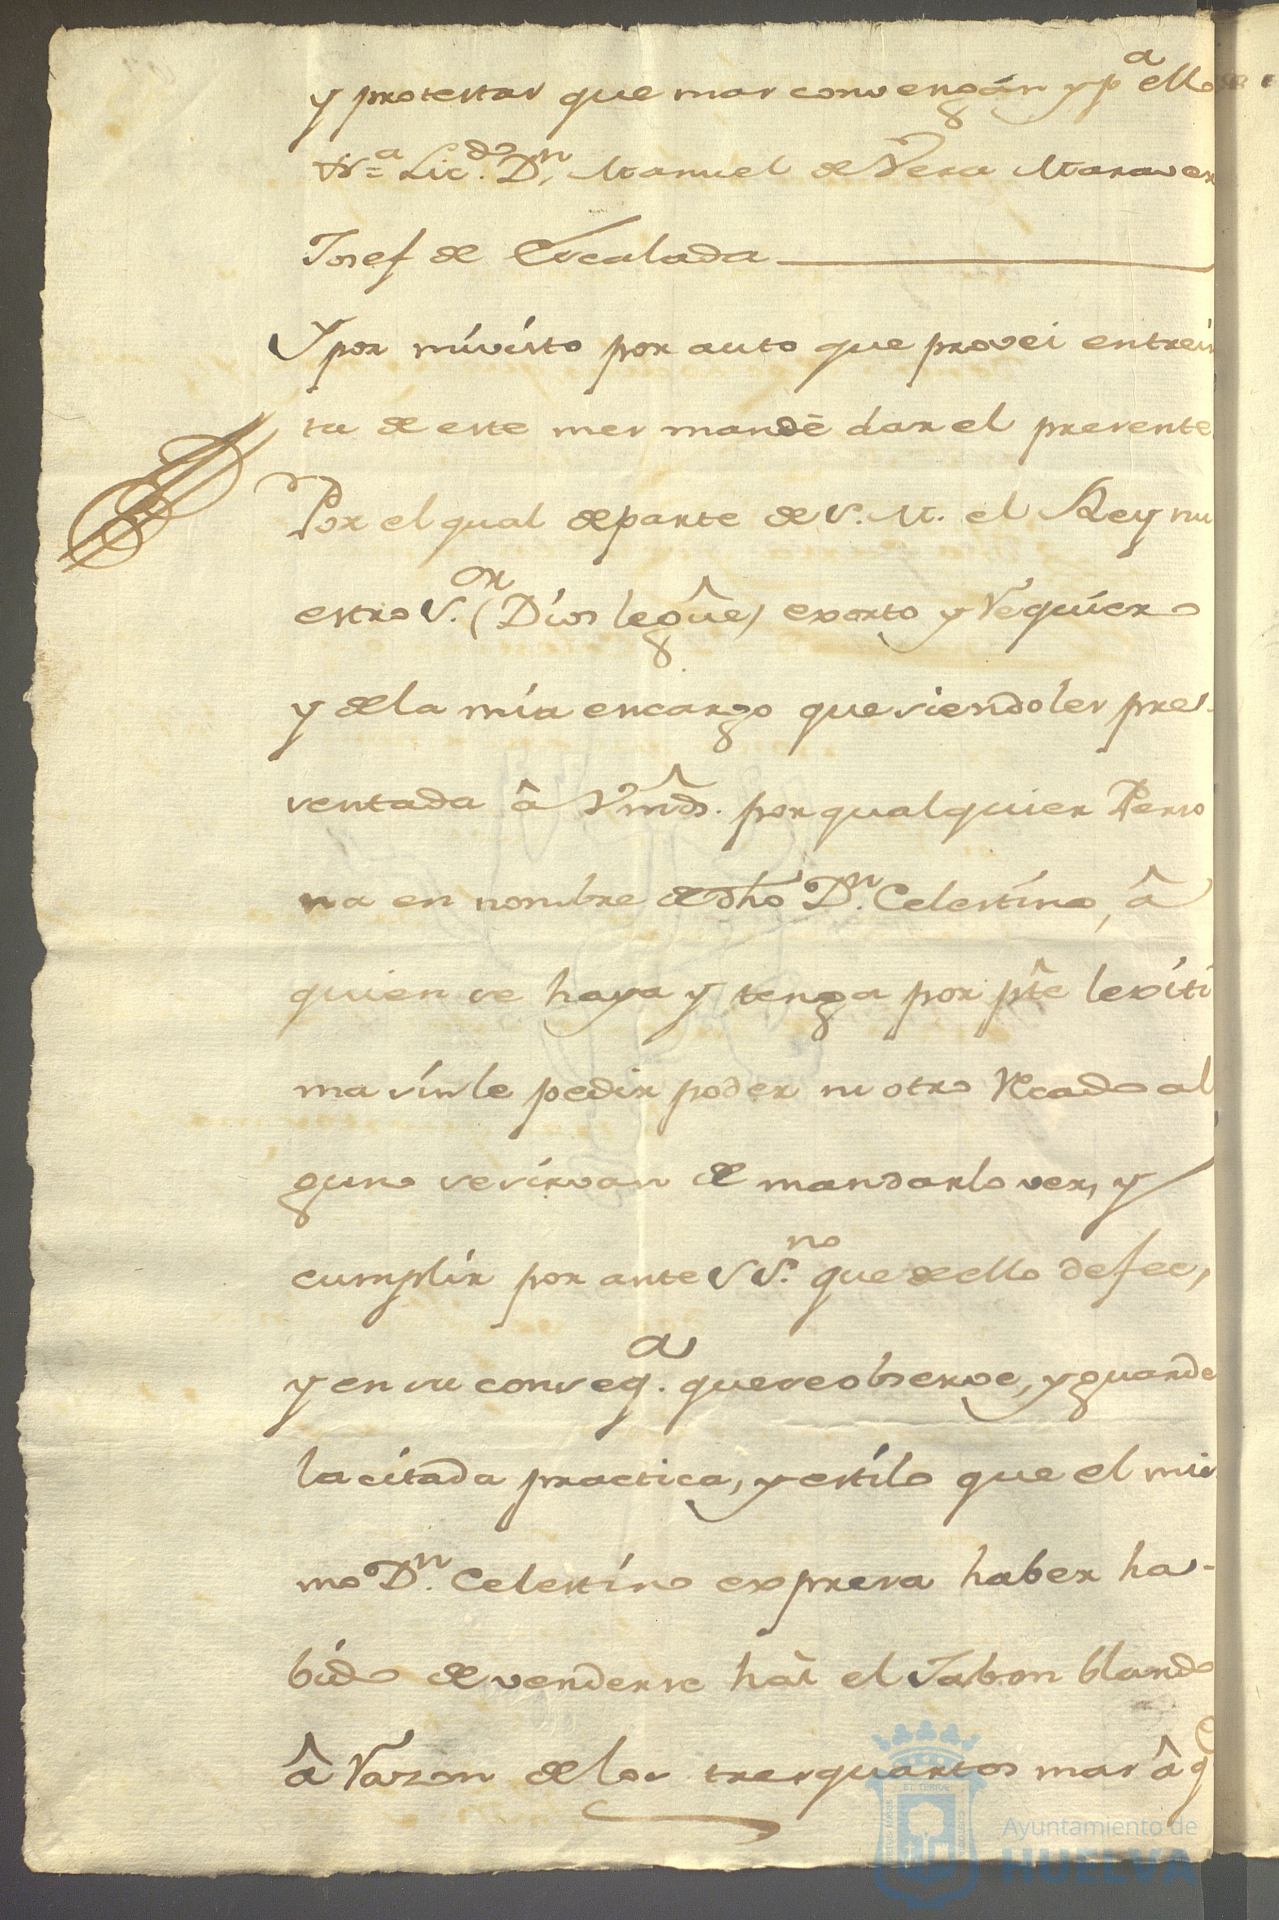 y protestas que mas convengan y p.ª ello
Lic.do D.n Manuel de Vera Maraver
Josef de Escalada
Y por mi visto por auto que provei en trein
ta de este mes mandé dar el presente
Por el qual de parte de S. M. el Rey nu
estro S.or (Dios le gûe) exorto y requiero
y de la mia encargo que siendoles pre-
sentada â Vmds. por qualquier Perso
na en nombre de dho D.n Celestino, â
quien se haya y tenga por pte lexiti
ma sin le pedir poder ni otro Recado al
guno se sirvan de mandarlo ver, y
cumplir por ante SS.no que de ello de fee,
y en su conseq.a que se observe, y guarde
la citada practica, y estilo que el mis
mo D.n Celestino expresa haber ha-
bido de venderse hai el Jabon blando
â razon de los tres quartos mas â q.e
Ayuntamiento de
HUELVA